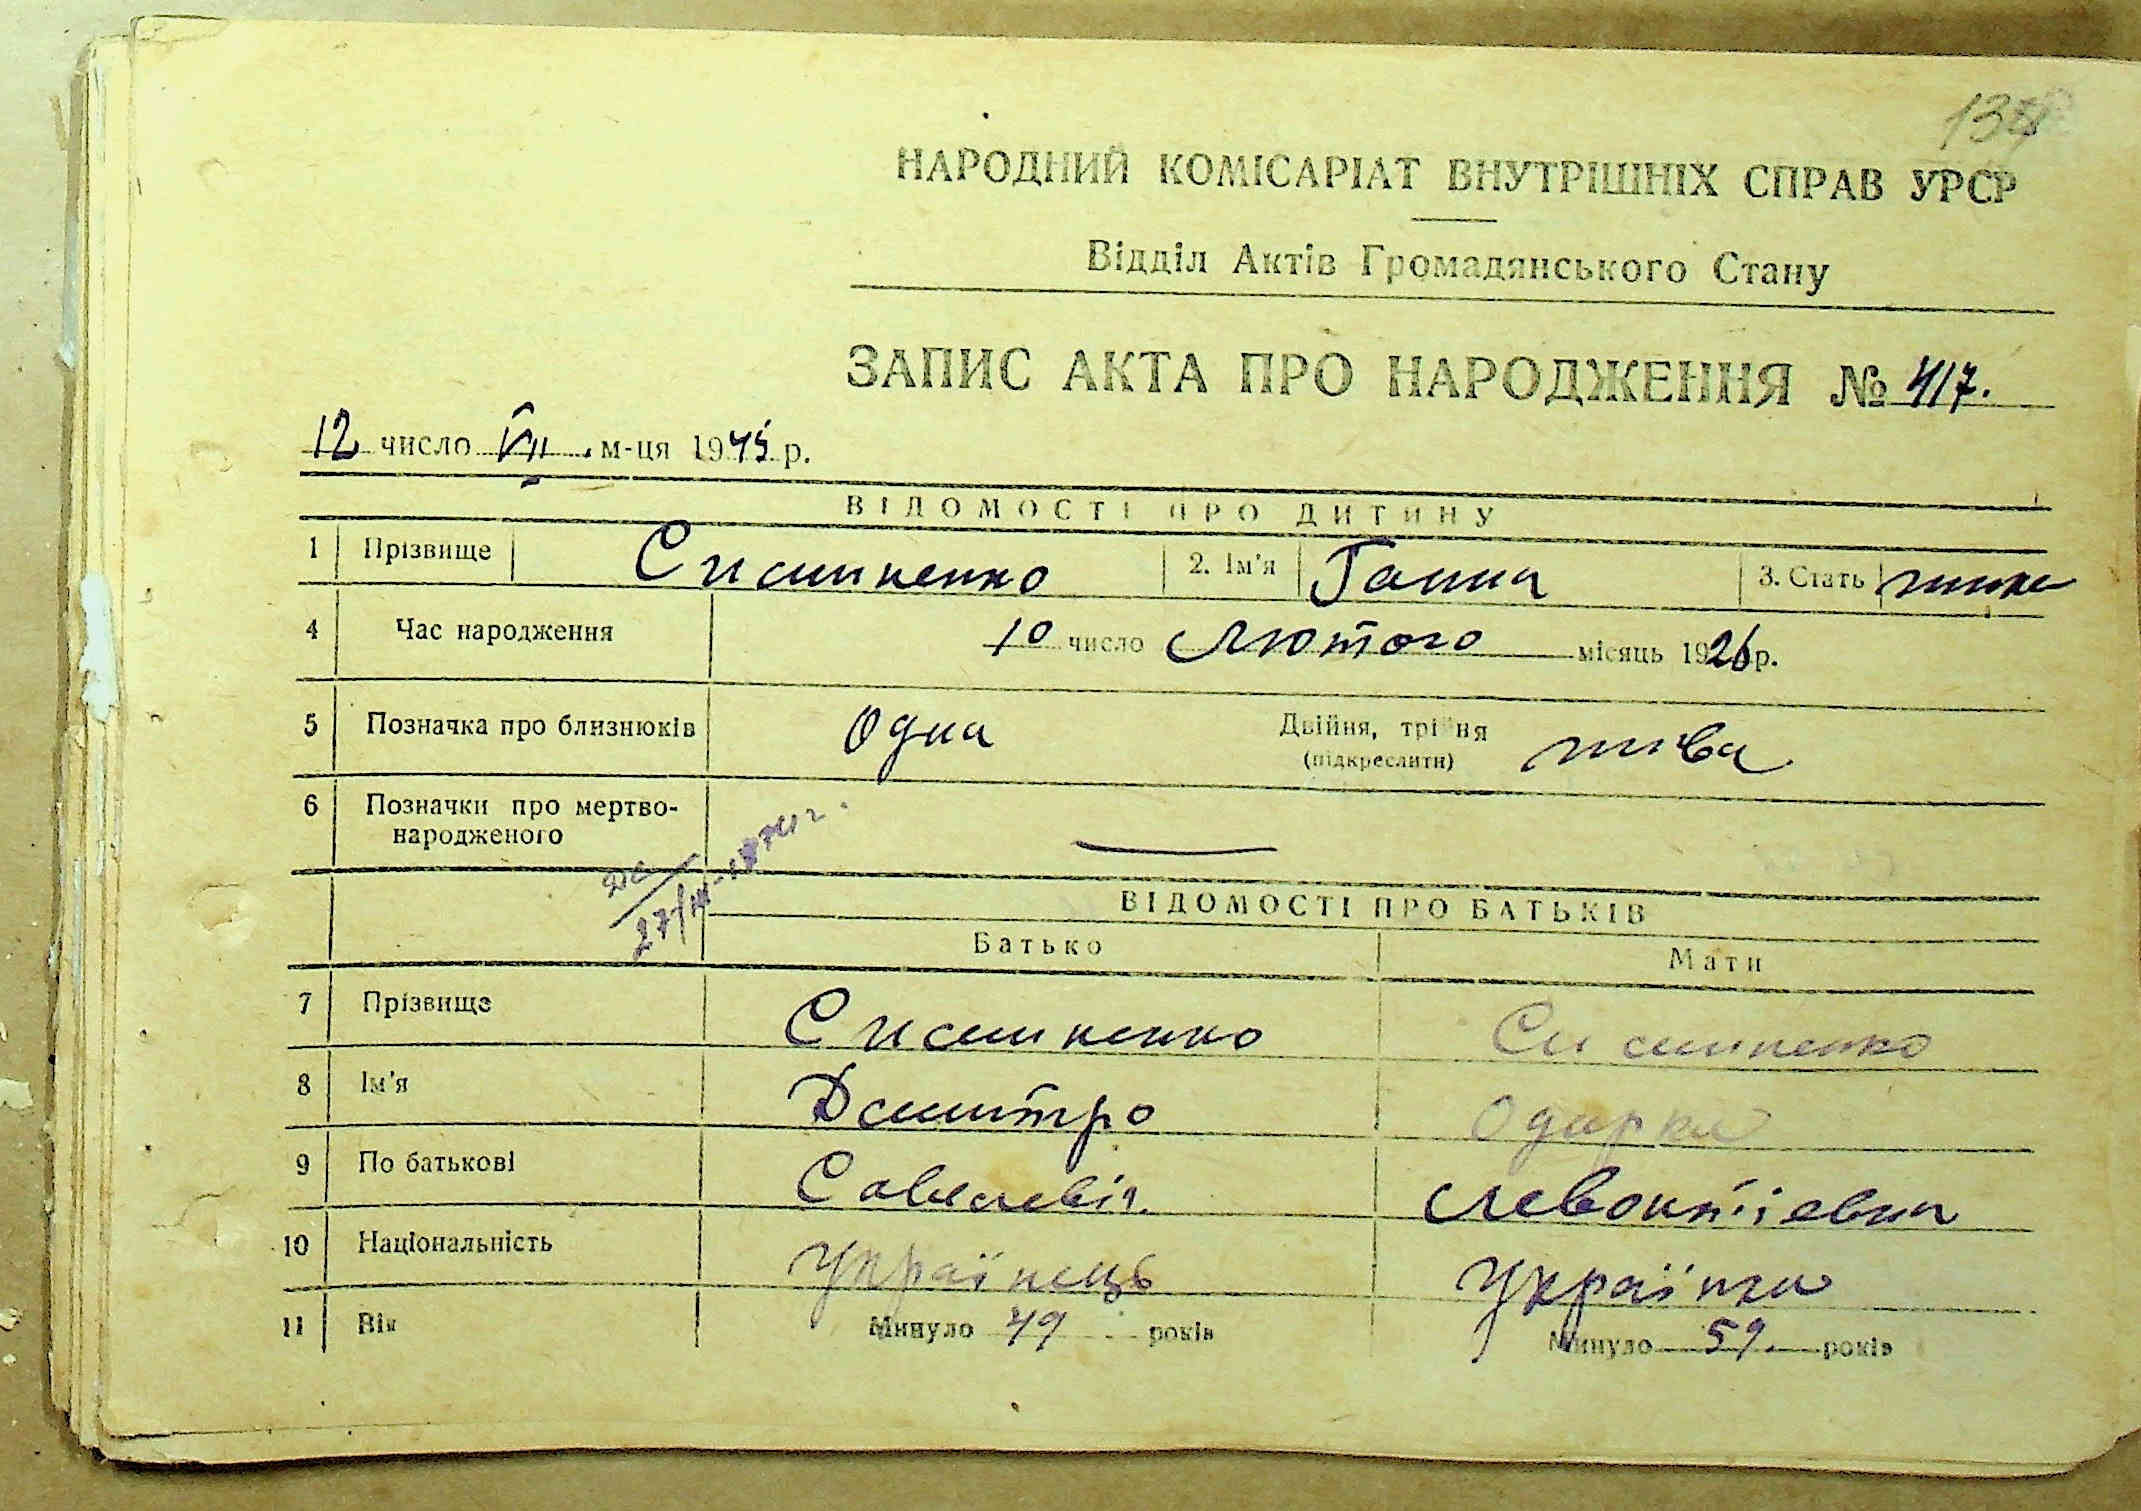 НАРОДНИЙ КОМІСАРІАТ ВНУТРІШНІХ СПРАВ УРСР
Відділ Актів Громадянського Стану
ЗАПИС АКТА ПРО НАРОДЖЕННЯ № 417.
12 число VII м-ця 1945 р.
ВІДОМОСТІ ПРО ДИТИНУ
1 Прізвище 2. Ім'я Ганна 3. Стать
4 Час народження 10 число Лютого місяць 1926 р.
5 Позначка про близнюків Одна Двійня, трійня жива
(підкреслити)
6 Позначки про мертво-
народженого
ВІДОМОСТІ ПРО БАТЬКІВ
Батько Мати
7 Прізвище
8 Ім'я Дмитро Одарка
9 По батькові Савелевіч. Левонтіевна
10 Національність Українець Українка
11 Вік Минуло 49 років Минуло 59 років